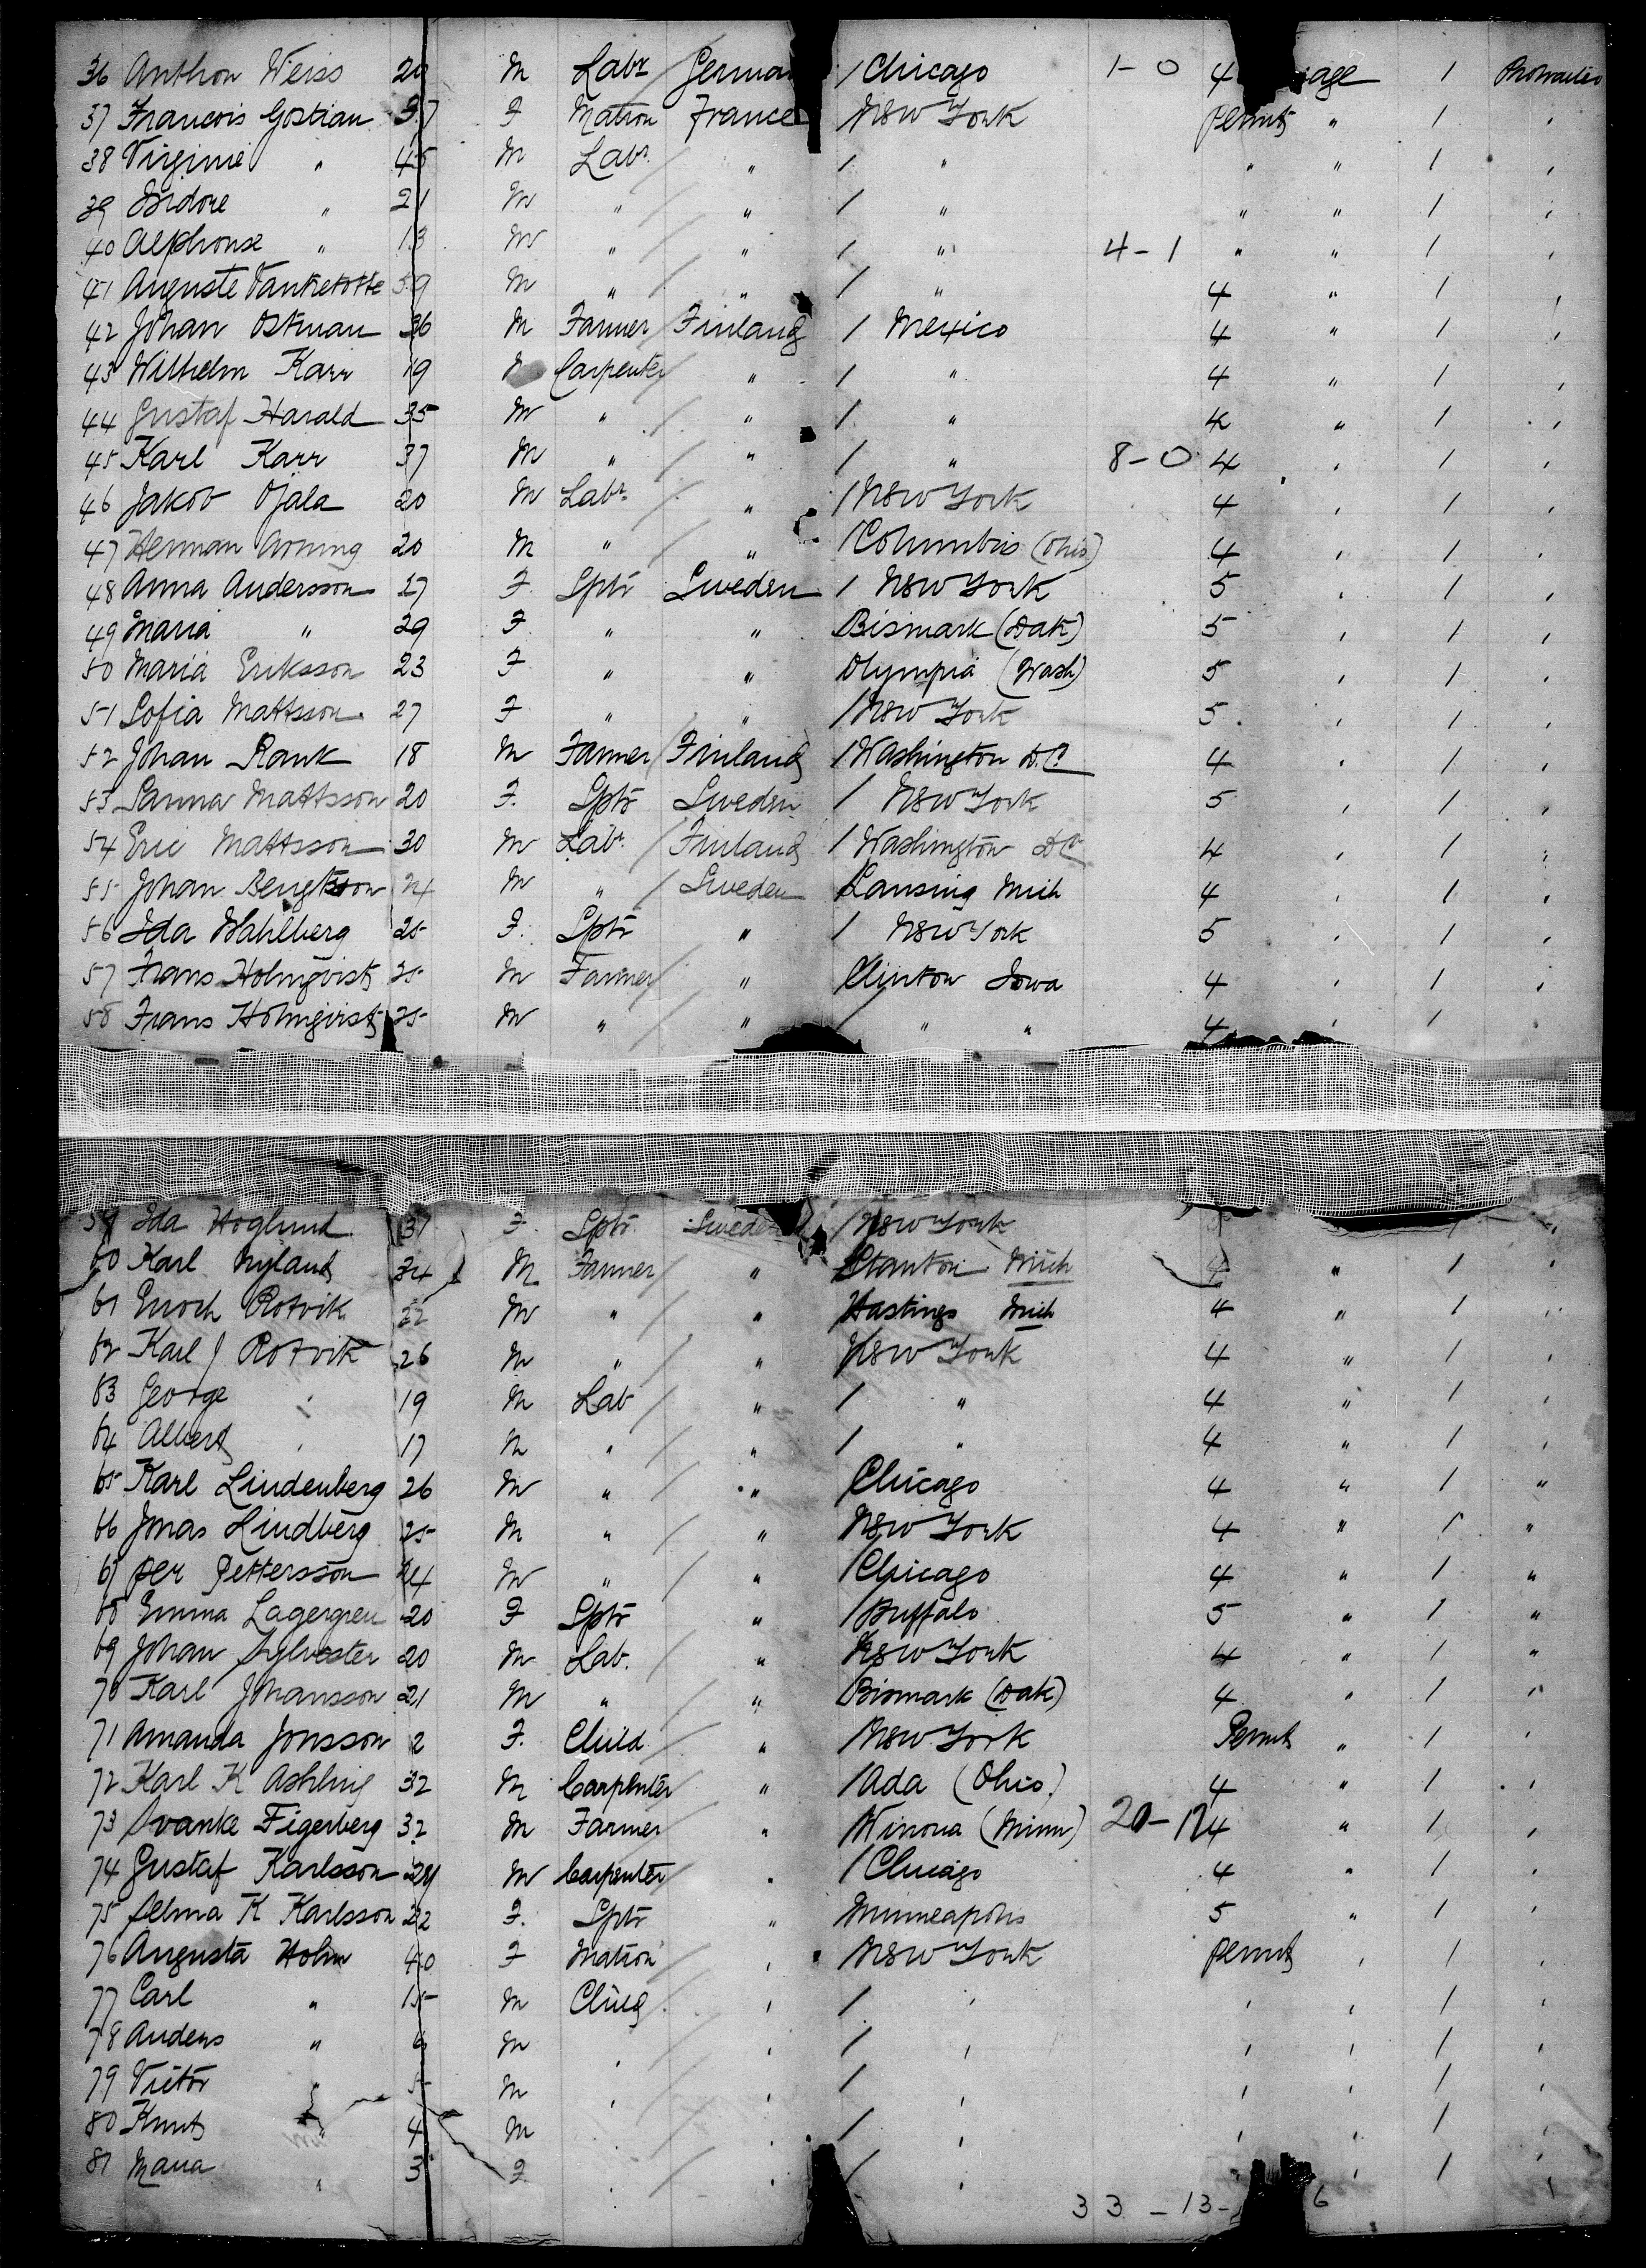 36 Anthon Weiss 20 M Labr German / Chicago 1-0 4 age 1 Protracted
37 Francois Gostian 37 F Matron France / New York Permt " 1 "
38 Virginie " 45 M Labr / " / " " " 1 "
39 Isidore " 21 M " / " / " " " 1 "
40 Alphonse " 18 M " / " / " 4-1 " " 1 "
41 Auguste Vanketotte 59 M " / " / " 4 " 1 "
42 Johan Ostman 36 M Farmer / Finland / Mexico 4 " 1 "
43 Wilhelm Karr 19 M Carpenter / " / " 4 " 1 "
44 Gustaf Harald 35 M " / " / " 4 " 1 "
45 Karl Karr 37 M " / " / " 8-0 4 " 1 "
46 Jakob Ojala 20 M Labr / " / New York 4 " 1 "
47 Herman Arning 20 M " / " / Columbus (Ohio) 4 " 1 "
48 Anna Andersson 27 F Sptr Sweden / New York 5 " 1 "
49 Maria " 29 F " " Bismark (Dak) 5 " 1 "
50 Maria Eriksson 23 F " " Olympia (Wash) 5 " 1 "
51 Sofia Mattsson 27 F " " / New York 5 " 1 "
52 Johan Rank 18 M Farmer / Finland / Washington D.C. 4 " 1 "
53 Sanna Mattsson 20 F. Sptr Sweden / New York 5 " 1 "
54 Eric Mattsson 30 M Labr / Finland / Washington DC 4 " 1 "
55 Johan Bengtsson 24 M " / Sweden Lansing Mich 4 " 1 "
56 Ida Wahlberg 25 F. Sptr " / New York 5 " 1 "
57 Frans Holmqvist 25 M Farmer / " Clinton Iowa 4 " 1 "
58 Frans Holmqvist 25 M " / " / " " 4 " 1
59 Ida Hoglund 31 F. Sptr Sweden / New York "
60 Karl Nyland 34 M Farmer / " Stanton Mich 4 " 1 "
61 Enoch Rotvik 22 M " / " Hastings Mich 4 " 1 "
62 Karl J Rotvik 26 M " / " New York 4 " 1 "
63 George " 19 M Lab / " / " 4 " 1 "
64 Albert " 17 M " / " / " 4 " 1 "
65 Karl Lindenberg 26 M " / " Chicago 4 " 1 "
66 Jonas Lindberg 25 M " / " New York 4 " 1 "
67 Per Pettersson 24 M " / " / Chicago 4 " 1 "
68 Emma Lagergren 20 F Sptr " / Buffalo 5 " 1 "
69 Johan Sylvester 20 M Lab. / " New York 4 " 1 "
70 Karl Johansson 21 M " / " Bismark (Dak) 4 " 1 "
71 Amanda Jonsson 2 F. Child / " / New York Permt " 1 "
72 Karl K Ashling 32 M Carpenter / " / Ada (Ohio) 4 " 1 "
73 Svanke Figerberg 32 M Farmer / " Winona (Minn) 20-12 4 " 1 "
74 Gustaf Karlsson 29 M Carpenter / " / Chicago 4 " 1 "
75 Selma K Karlsson 22 F. Sptr " Minneapolis 5 " 1 "
76 Augusta Holm 40 F Matron " / New York Permt " 1 "
77 Carl " 15 M Child / " / " " " 1 "
78 Anders " 6 M " / " / " " " 1 "
79 Victor " 5 M " / " / " " " 1 "
80 Knut " 4 M " / " / " " " 1 "
81 Maria " 3 F " / " / " " " 1 "
33-13- 6